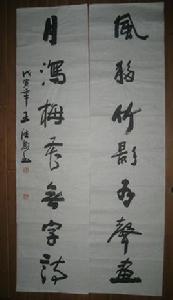 風移竹影有聲畫
月瀉梅香無字詩
戊寅年王